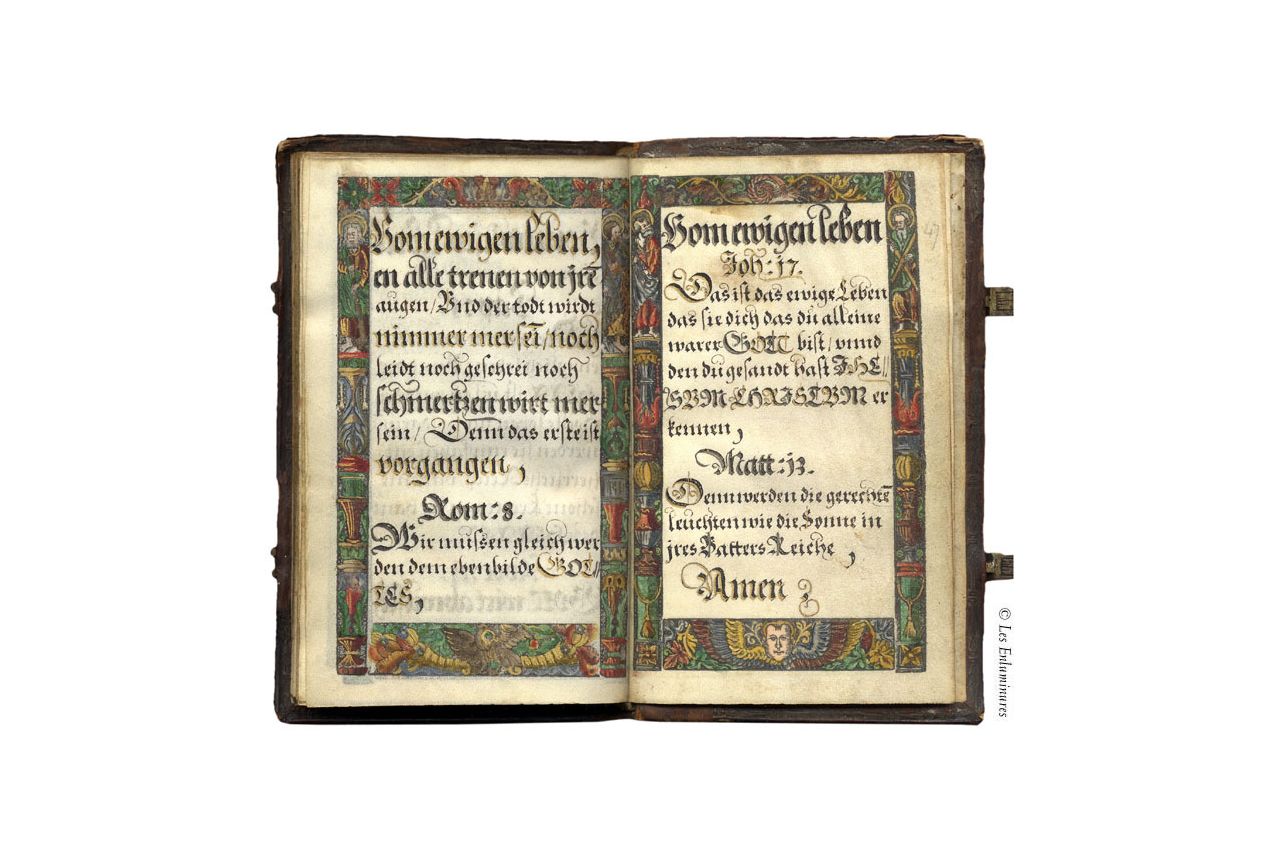 Vom ewigen leben,
en alle trenen von jrē
augen / Vnd der todt wirdt
nimmer mer sēī / noch
leidt noch geschrei noch
schmertzen wirt mer
sein / Denn das erste ist
vorgangen,
Rom: 8.
Wir mussen gleich wer
den dem ebenbilde GOT//
TES,
Vom ewigen leben
Joh: 17.
Das ist das ewige Leben
das sie dich das du alleine
warer GOTT bist / vnnd
den du gesandt hast JHE//
SVM CHRISTVM er
kennen,
Matt: 13.
Denn werden die gerechtē
leuchten wie die Sonne in
jres Vatters Reiche,
Amen
47
© Les Enluminures